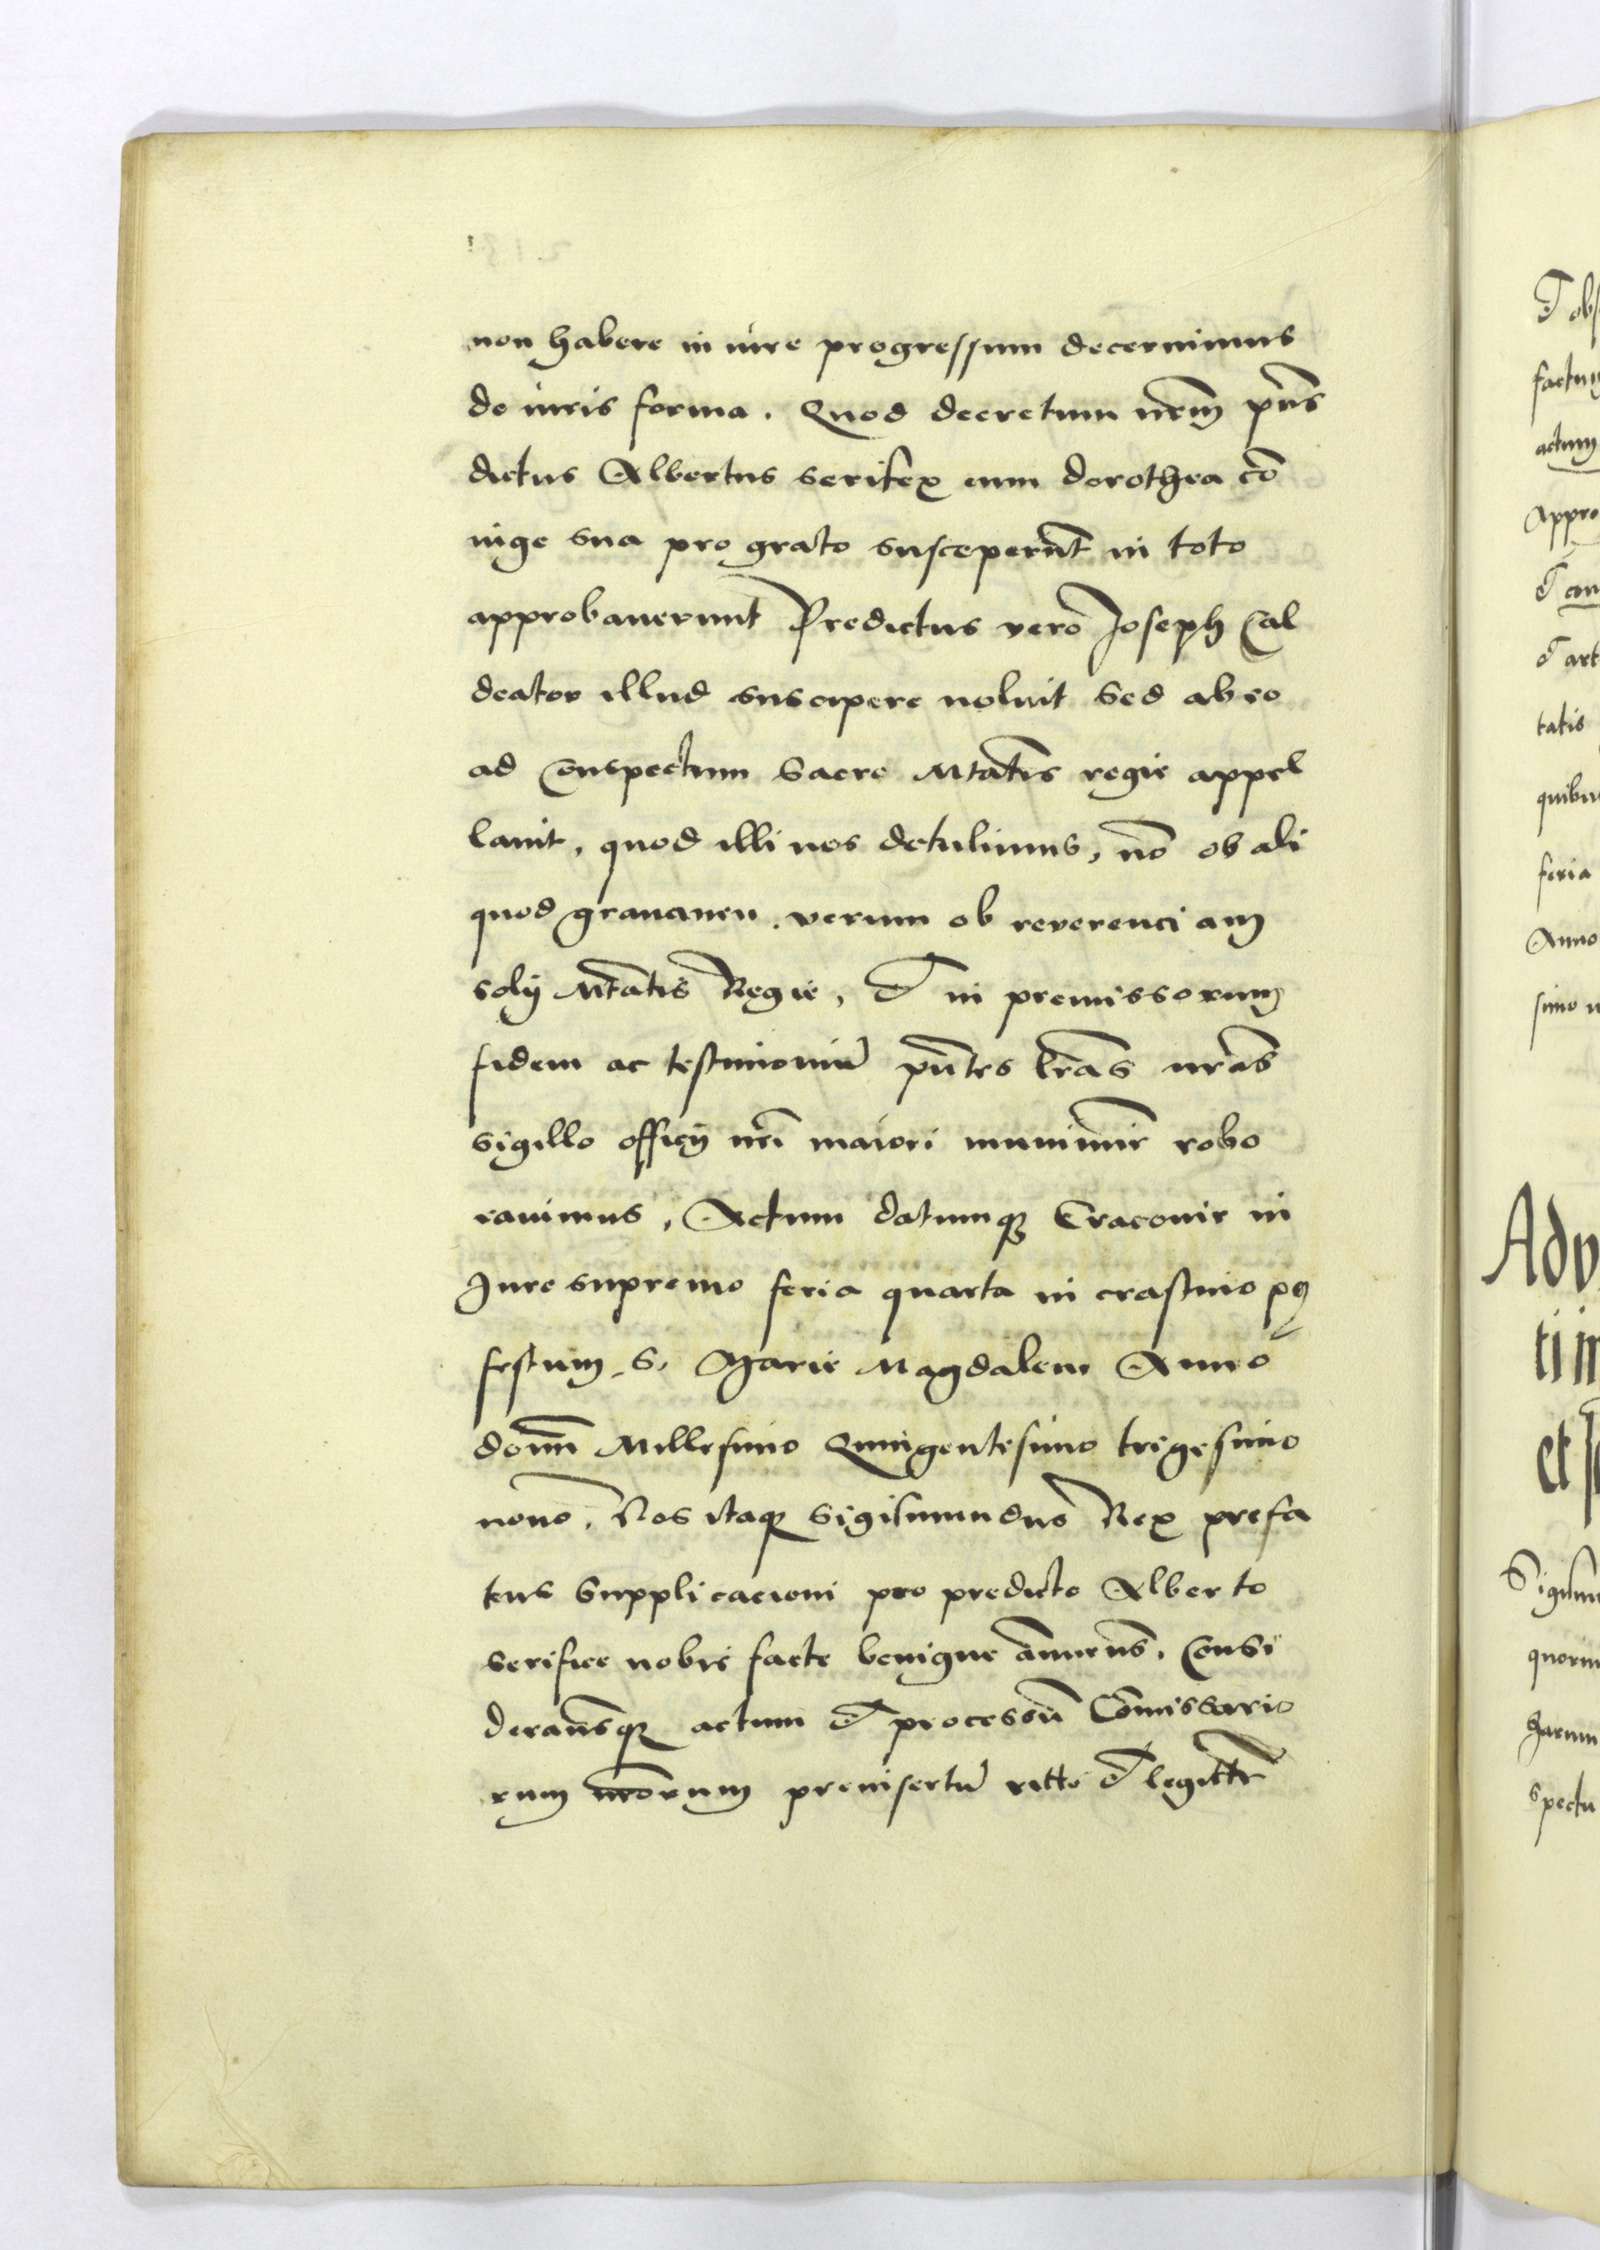 non habere in iure progressum decernimus
de iuris forma. Quod decretum nr̃m pñs
dictus Albertus serifex cum dorothea cõ
iuge sua pro grato susceperũt in toto
approbauerunt Predictus vero Joseph Cal
deator illud suscipere noluit Sed ab eo
ad Conspectum Sacre Mtatis regie appel
lauit, quod illi nos detulimus, nõ ob ali
quod grauamen verum ob reverenciam
solij Mtatis Regie, Et in premissorum
fidem ac testimoniũ pñtes lr̃as nr̃as
sigillo officij nr̃i maiori munimĩe robo
rauimus, Actum datumq; Cracouie in
Jure supremo feria quarta in crastino p9
festum S. Marie Magdalene Anno
domĩ Millesimo Quingentesimo trigesimo
nono, Nos itaq; Sigismundus Rex prefa
tus Supplicacioni pro predicto Alberto
serifice nobis facte benigne ãnuens, Consi
deransq; actum et processũ Com̃issario
rum nr̃orum preinsertũ ritte et legittĩe
Et
factum
actum
Appro
Et
Et art
tatis
feria
Anno
simo
Adv
ti in
et
Sigism
harum
spectu